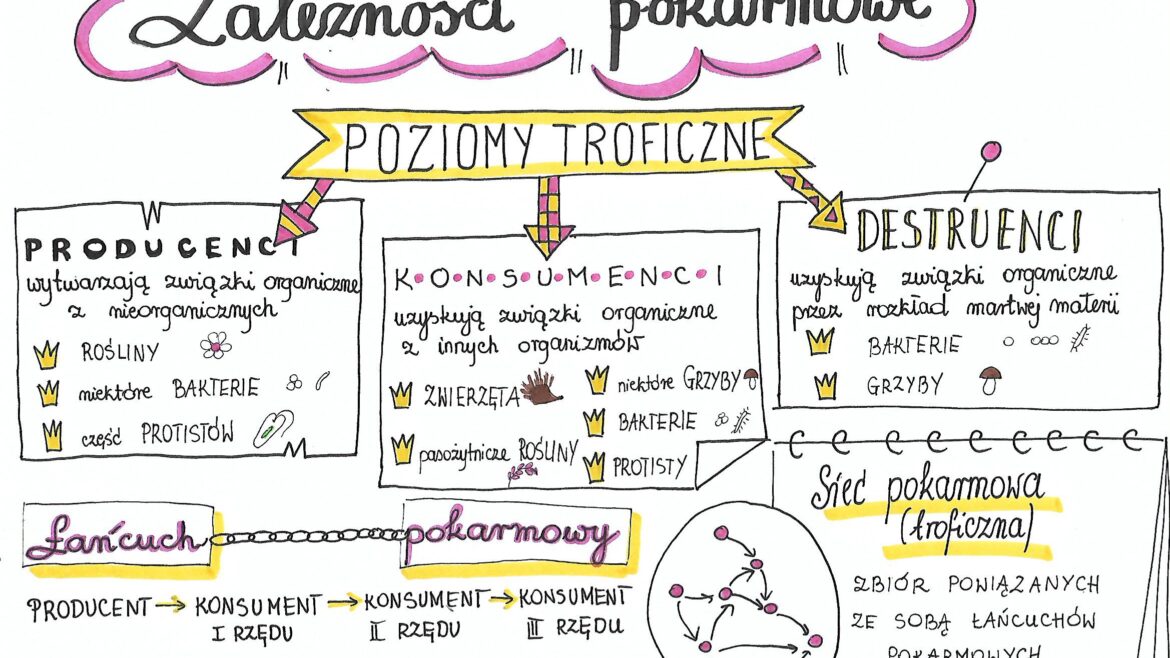 Zależności pokarmowe
POZIOMY TROFICZNE
PRODUCENCI
wytwarzają związki organiczne
z nieorganicznych
ROŚLINY
niektóre BAKTERIE
część PROTISTÓW
KONSUMENCI
uzyskują związki organiczne
z innych organizmów
ZWIERZĘTA
pasożytnicze ROŚLINY
niektóre GRZYBY
BAKTERIE
PROTISTY
DESTRUENCI
uzyskują związki organiczne
przez rozkład martwej materii
BAKTERIE
GRZYBY
Łańcuch pokarmowy
PRODUCENT → KONSUMENT I RZĘDU → KONSUMENT II RZĘDU → KONSUMENT III RZĘDU
Sieć pokarmowa
(troficzna)
ZBIÓR POWIĄZANYCH
ZE SOBĄ ŁAŃCUCHÓW
POKARMOWYCH